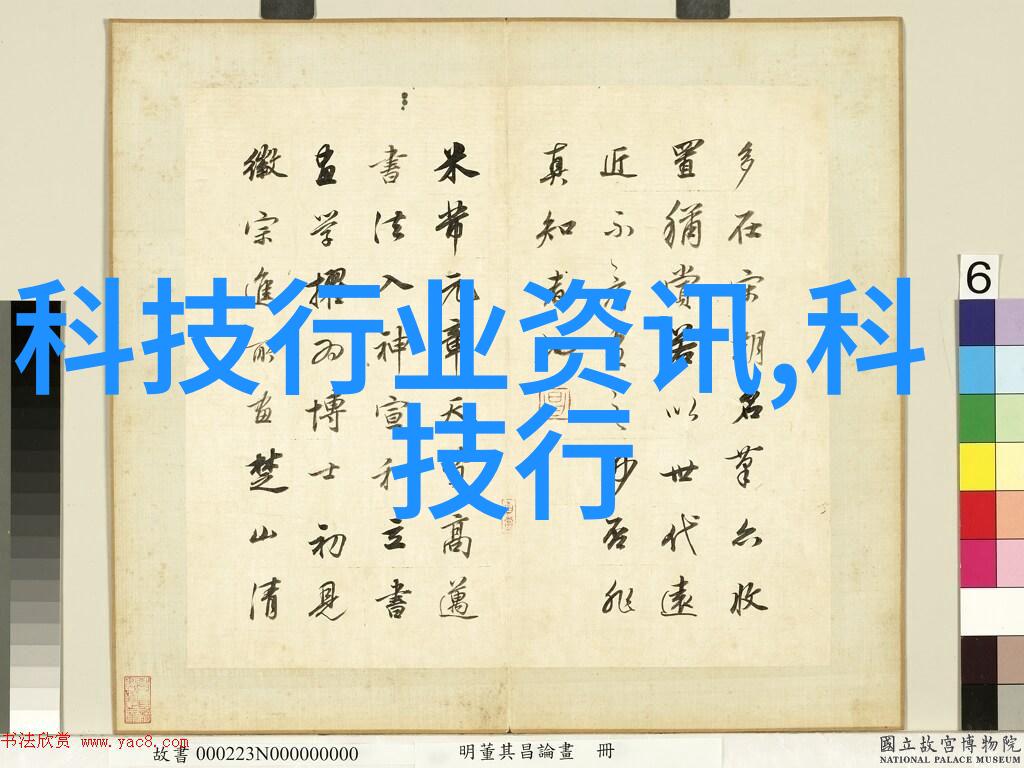 科技行业资讯,科
技行
多在宋朝名筆亦收
置猶賞以世代遠
近不之妙否非
真知
米芾元章天資高邁
書法入神宣和立書
畫学擢為博士初見
徽宗進所畫楚山清
6
书法欣赏 www.yac8.com
故書 000223N000000000
明董其昌論畫 冊
國立故宮博物院
NATIONAL PALACE MUSEUM